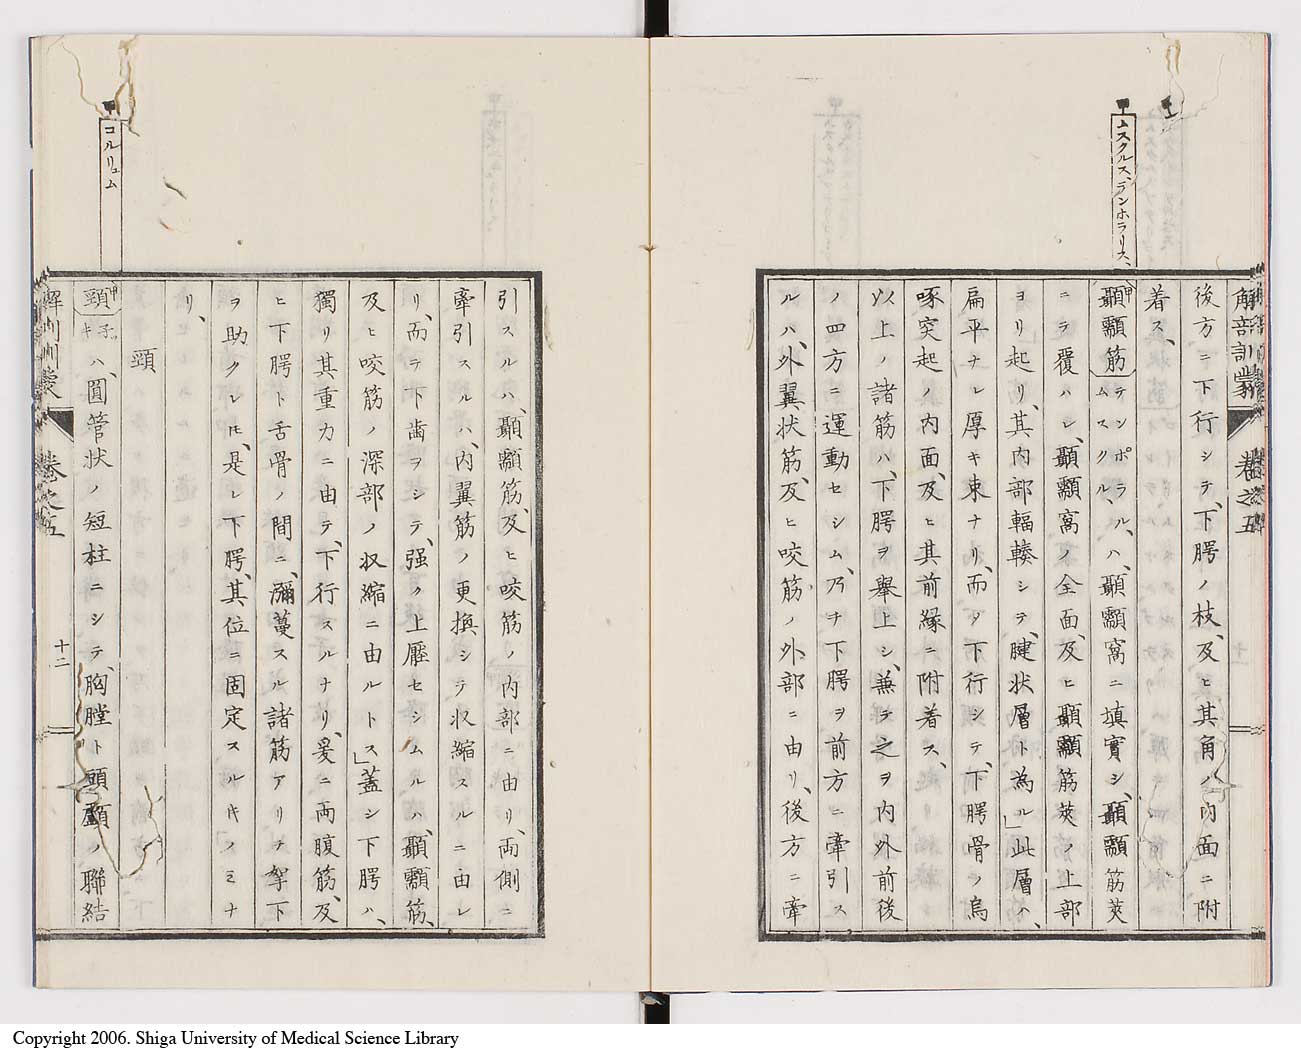 ムスクルス、テンホラリス、
解剖訓蒙
巻之五
後方ニ下行シテ、下腭ノ枝、及ヒ其角ノ内面ニ附
着ス、
甲
顳顬筋
テンポラル、
ムスクル、
ハ、顳顬窩ニ填實シ、顳顬筋莢
ニテ覆ハレ、顳顬窩ノ全面、及ヒ顳顬筋莢ノ上部
ヨリ起リ、其内部輻輳シテ、腱状層ト為ル」此層ハ、
扁平ナレ厚キ束ナリ、而〆下行シテ、下腭骨ノ烏
啄突起ノ内面、及ヒ其前縁ニ附着ス、
以上ノ諸筋ハ、下腭ヲ擧上シ、兼テ之ヲ内外前後
ノ四方ニ運動セシム、乃チ下腭ヲ前方ニ牽引ス
ルハ、外翼状筋、及ヒ咬筋ノ外部ニ由リ、後方ニ牽
引スルハ、顳顬筋、及ヒ咬筋ノ内部ニ由リ、両側ニ
牽引スルハ、内翼筋ノ更換シテ収縮スルニ由レ
リ、而テ下歯ヲシテ、强ク上壓セシムルハ、顳顬筋、
及ヒ咬筋ノ深部ノ収縮ニ由ルトス」蓋シ下腭ハ、
獨リ其重力ニ由テ、下行スルナリ、爰ニ両腹筋、及
ヒ下腭ト舌骨ノ間ニ、瀰蔓スル諸筋アリテ拏下
ヲ助クレ𪜈、是レ下腭、其位ニ固定スルキノミナ
リ、
頸
コルリュム
甲
頸
子ッキ
ハ、圓管状ノ短柱ニシテ、胸膛ト頭顱ノ聯結
解剖訓蒙
巻之五
十二